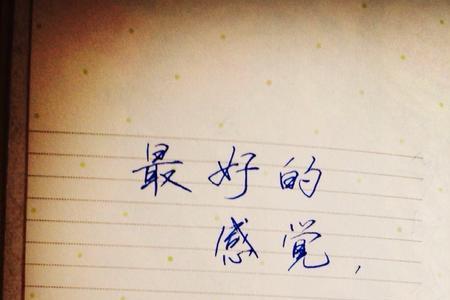 最好的
感觉，